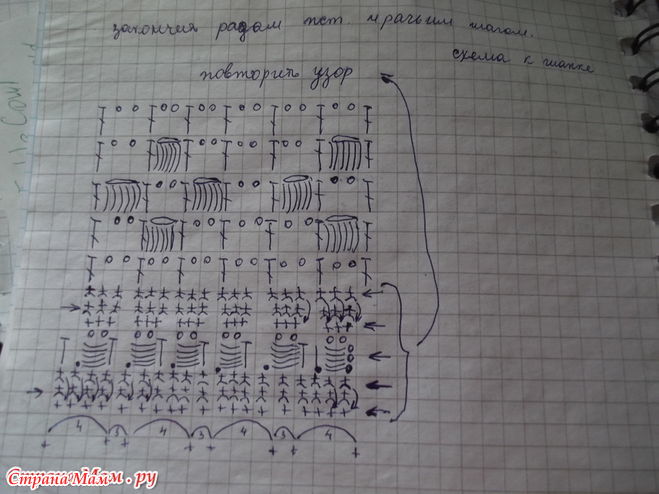 закончил рядом пст. рачьим шагом.
схема к шапке
повторить узор
4 3 4 3 4 3 4
Страна Мам.ру